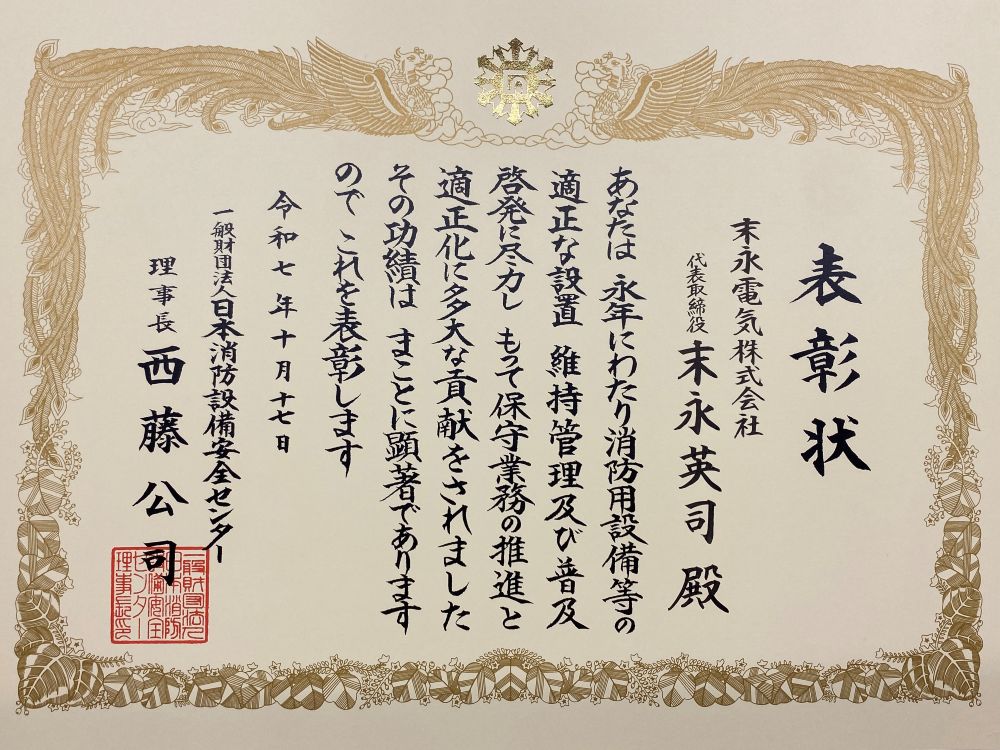 表彰状
末永電気株式会社
代表取締役 末永英司 殿
あなたは 永年にわたり消防用設備等の
適正な設置 維持管理及び普及
啓発に尽力し もって保守業務の推進と
適正化に多大な貢献をされました
その功績は まことに顕著であります
ので これを表彰します
令和七年十月十七日
一般財団法人日本消防設備安全センター
理事長 西藤公司
一般財団法人
日本消防
設備安全
センター
理事長印